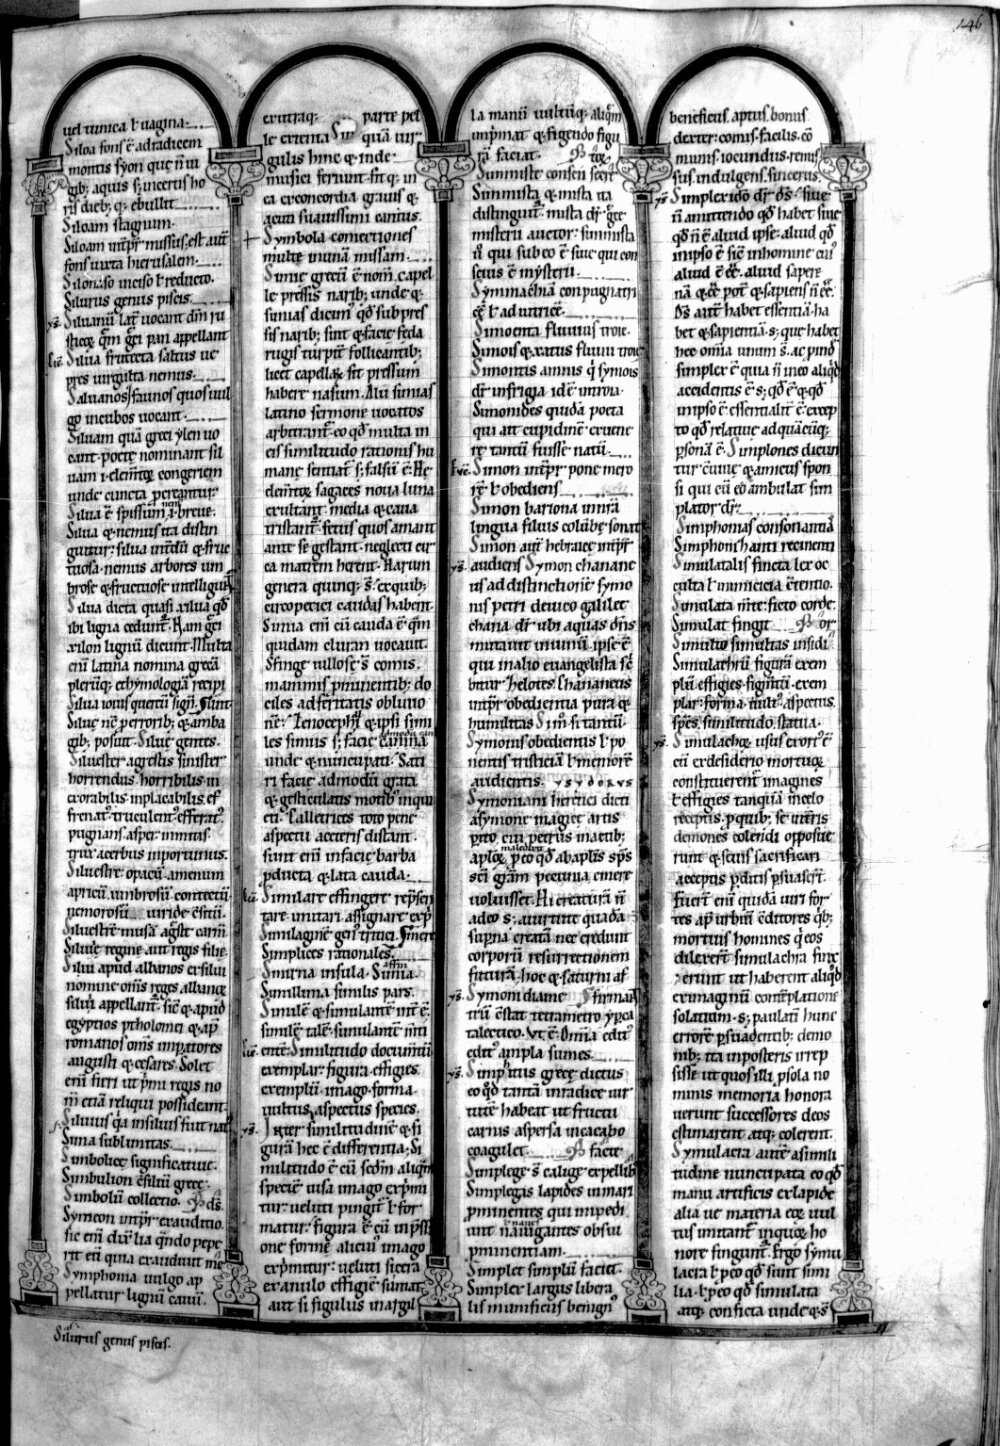 146
uel tunica ł uagina.
Siloa fons ē ad radicem
montis syon que ñ iu
gib; aquis s; incertis ho
ris dieb; q; ebullit
Siloam stagnum.
Siloam int̄pr̄ missus. est aut̄
fons iuxta hierusalem.
Silonaso inciso ł reducto.
Silurus genus piscis.
Siluanū lat̄ uocant dm̄ ru
sticoꝝ quē gr̄ci pan appellant
Silua frutecta saltus ue
pres uirgulta nemus.
Saluanos faunos quos uul
go incubos uocant.
Siluam quā greci ylen uo
cant. poete nominant sil
uam .i. elem̄toꝝ congeriem
unde cuncta percantur
Silua ē spissum nem; ⁊ breue.
Silua q; nemus ita distin
guitur: silua int̄dū q; fruc
tuosa. nemus arbores um
brose q; fructuose intelligunt̄
Silua dicta quasi xilua qđ
ibi ligna cedunt̄. Nam gr̄ci
xilon lignū dicunt. Multa
eni latina nomina grecā
pleruq; ethymologiā recipi
Silua iouis quercū sign̄. Sunt
Siluę nē perrorib; q; amba
gib; posunt. Siluę gentes.
Siluester agrestis sinister
horrendus horribilis in
exorabilis inplacabilis ef
frenat; truculent; efferat;
pugnans asper inmitis
trux acerbus inportunus.
Siluestre opacū amenum
apricū umbrosū contectū
nemorosū uiride ēsitū.
Siluestrē musā agr̄stē carm̄.
Siluię regine aut regis filie
Siluii apud albanos ex siluii
nomine om̄s reges albanoꝝ
siluii appellant̄. sic̄ q; apud
egyptios ptholomei q; ap̄
romanos om̄s imp̄atores
augusti q; cesares. Solet
eni fieri ut p̄mi regis no
m̄ etiā reliqui possideant.
Siluius qā in siluis fuit nat;
Sima sublimitas.
Simbolice significatiue.
Simbulion cōsiliū grece.
Simbolū collectio. ds̄.
Symeon int̄pr̄ exauditio.
sic eni dix̄ lia qn̄do pepe
rit eū quia exaudiuit me
Symphonia uulgo ap
pellatur lignū cauū.
Silurus genus piscis.
ex utraq; parte pel
le extenta quā uir
gulis hinc q; inde
musici feriunt. fit q; in
ea exconcordia grauis q;
acuti suauissimi cantus.
Symbola comectiones
multe inunā missam.
Simie grecū ē nom̄. capel
le pressis narib; unde q;
simias dicim; qđ subpres
sis narib; sint q; facie feda
rugis turpit̄ follicantib;
licet capellaꝝ sit pressum
habere nasum. Alii simias
latino sermone uocatos
arbitrant̄. eo qđ multa in
eis similitudo rationis hu
manę sentiat̄. s; falsū ē. Hę
elem̄toꝝ sagaces noua luna
exultant. media q; caua
tristant̄. fetus quos amant
ante se gestant. neglecti cir
ca matrem herent. Harum
genera quinq; s̄. ex quib;
circopeteci caudas habent
Simia eni cū cauda ē q̄m
quidam cluran uocauit.
Sfinge uillose s̄ comis.
mammis p̄minentib; do
ciles ad feritatis obliuio
nē. Cenocephali q; ipsi simi
les simiis s; facie canina
unde q; nuncupati. Sati
ri facie admodū grata
q; gesticulatis motib; inqui
eti. Callitrices toto pene
aspectu a ceteris distant.
sunt eni infacie barba
p̄ducta q; lata cauda.
Similare effingere rep̄sen
tare imitari assignare exp̄
Similaginē gen; tritici.
Simplices rationales.
Simirna insula. Simia.
Simillima similis pars.
Similē q; simulantē int̄ ē.
similē talē. simulantē m̄ti
entē. Similitudo documtū
exemplar. figura effigies.
exemplū. imago. forma.
uultus, aspectus species.
Inter similitudinē q; fi
gurā hec ē differentia. Si
militudo ē cū sedm̄ aliquā
speciē uisa imago exp̄mi
tur. ueluti pingit̄ ł for
matur. figura ē cū imp̄ssi
one forme alicui; imago
exp̄mitur. ueluti si cera
ex anulo effigiē sumat
aut si figulus inargil
la manū uultūq; aliquē
inp̄mat q; figendo figu
rā faciat.
Summiste consentī secret̄
Simmista q; mista ita
distinguit̄. mista dr̄ grēce
misterii auctor: simmista
u̇ qui sub eo ē siue qui con
scius ē mysterii.
Symmachiā conpugnatri
cē ł adiutricē.
Simoenta fluuius troie.
Simois q; xatus fluuii troię
Simontis amnis q̄ symois
dr̄ in frigia id ē introia.
Simonides quidā poeta
qui ait cupidinē cruenc
rę tantū fuisse natū.
Simon int̄pr̄ pone mero
rē ł obediens.
Simon bariona inn̄rā
lingua filius colūbę sonat
Simon aut̄ hebraicę int̄pr̄
audiens Symon chanane
us ad distinctionē symo
nis petri de uico galilee
chana dr̄ ubi aquas dn̄s
mutauit inuinū. ipse ē
qui in alio euangelista sc̄
bitur zelotes. Chananeus
int̄pr̄ obedientia pura q;
humilitas Simon si tantū
Symonis obedientis ł po
nentis tristiciā ł memorē
audientis. YSYDORVS
Symoniani heretici dicti
a symone magice artis
p̄ito cui petrus in actib;
ap̄loꝝ maledixit p̄ eo qđ ab ap̄lis sp̄s
sc̄i gr̄am pecunia emere
uoluisset. Hi creaturā ñ
a deo s; a uirtute quadā
sup̄na creatā nec credunt
corporū resurrectionem
futurā. hoc q; saturni af
Symoni diame firmant
trū cstat tetrametro ypca
talectico. ut ē. Om̄ia editꝰ
editꝰ ampla sumes.
Simphitus grece dictus
eo qđ tantā inradice uir
tutē habeat ut frusta
carnis aspersa incacabo
coagulet. facit̄
Simplege s̄ caligę ex pellib;
Simplegis lapides in mari
p̄minentes qui impedi
unt nauigantes obsui
p̄minentiam.
Simplet simplū faciet.
Simplex largus libera
lis munificus benign;
beneficus. aptus. bonus
dexter. comis. facilis. cō
munis. iocundus. remis
sus. indulgens. sincerus.
Simplex ido dr̄ ds̄. siue
ñ amittendo qđ habet siue
qđ ñ ē aliud ipse. aliud qđ
in ipso ē sic̄ in homine cui;
aliud ē ēe. aliud sapere
nā q; ēe pot̄ q; sapiens ñ ēe.
Ds̄ aut̄ habet essentiā. ha
bet q; sapientiā. s; que habet
hec om̄ia unum s̄. ac p̄inde
simplex ē quia ñ in eo aliqđ
accidentis ē. s; qđ ē q; qđ
in ipso ē. essentialit̄ ē. excep
to qđ relatiue ad quācūq;
p̄sonā ē. Simplones dicun
tur cuiue q; amicus spon
si qui cū eo ambulat sim
plator dr̄.
Simphonias consonantiā
Simphoniz̄anti recinenti
Simulatalis ficticia lex oc
culta ł inimicicia cōtentio.
Simulata mte: ficto corde.
Simulat fingit
Simulto simultas insidię
Simulachrū figurā exem
plū effigies figm̄tū. exem
plar. forma. uult; aspectus.
sp̄es. similitudo. statua.
Simulachroꝝ usus exort; ē
cū ex desiderio mortuoꝝ
constituerent̄ imagines
ł effigies tanquā in celo
receptis. p̄ quib; se interris
demones colendi opposue
runt q; seuis sacrificari
acceptis p̄ditis p̄suaser̄t.
Fuer̄t eni quidā uiri for
tes ap̄ urbiū cōditores q̄b;
mortuis homines q̄i eos
dilexer̄t simulachra finx
erunt ut haberent aliqđ
ex imaginū conteplatione
solatium. s; paulatī hunc
errorē p̄suadentib; demo
nib; ita inposteris irrep
sisse ut quos illi p̄ sola no
minis memoria honora
uerunt successores deos
estimarent atq; colerent.
Symulacra aut̄ a simili
tudine nuncupata eo qđ
manu artificis ex lapide
alia ue materia eoꝝ uul
tus imitant̄ in quoꝝ ho
nore fingunt̄. Ergo symu
lacra ł p̄ eo qđ sunt simi
lia. ł p̄ eo qđ simulata
atq; conficta unde q; s̄